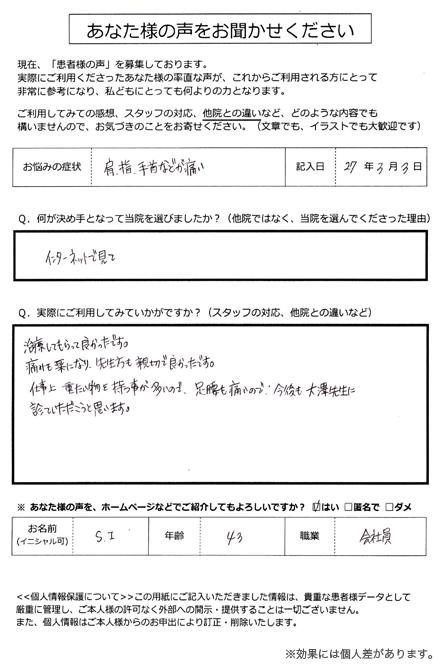 あなた様の声をお聞かせください
現在、「患者様の声」を募集しております。
実際にご利用くださったあなた様の率直な声が、これからご利用される方にとって
非常に参考になり、私どもにとっても何よりの力となります。
ご利用してみての感想、スタッフの対応、他院との違いなど、どのような内容でも
構いませんので、お気づきのことをお寄せください。（文章でも、イラストでも大歓迎です）
お悩みの症状 肩、指、手首などが痛い 記入日 27年3月3日
Q．何が決め手となって当院を選びましたか？（他院ではなく、当院を選んでくださった理由）
インターネットで見て
Q．実際にご利用してみていかがですか？（スタッフの対応、他院との違いなど）
治療してもらって良かったです。
痛みも楽になり、先生方も親切で良かったです。
仕事上 重たい物を持つ事が多いので、足腰も痛いので、今後も大澤先生に
診ていただこうと思います。
※ あなた様の声を、ホームページなどでご紹介してもよろしいですか？ ☑はい □匿名で □ダメ
お名前 (イニシャル可) S.I 年齢 43 職業 会社員
<<個人情報保護について>>この用紙にご記入いただきました情報は、貴重な患者様データとして
厳重に管理し、ご本人様の許可なく外部への開示・提供することは一切ございません。
また、個人情報はご本人様からのお申出により訂正・削除いたします。
※効果には個人差があります。